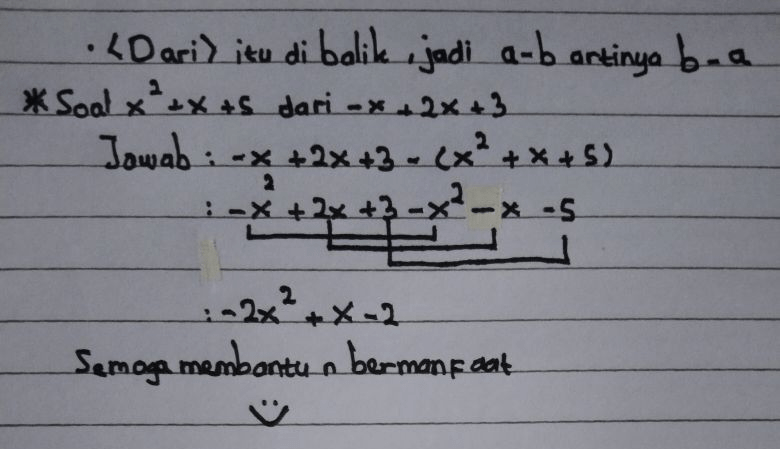 • <Dari> itu di balik, jadi a-b artinya b-a
* Soal x² + x + 5 dari -x + 2x + 3
Jawab : -x + 2x + 3 - (x² + x + 5)
: -x² + 2x + 3 - x² - x - 5
: -2x² + x - 2
Semoga membantu n bermanfaat